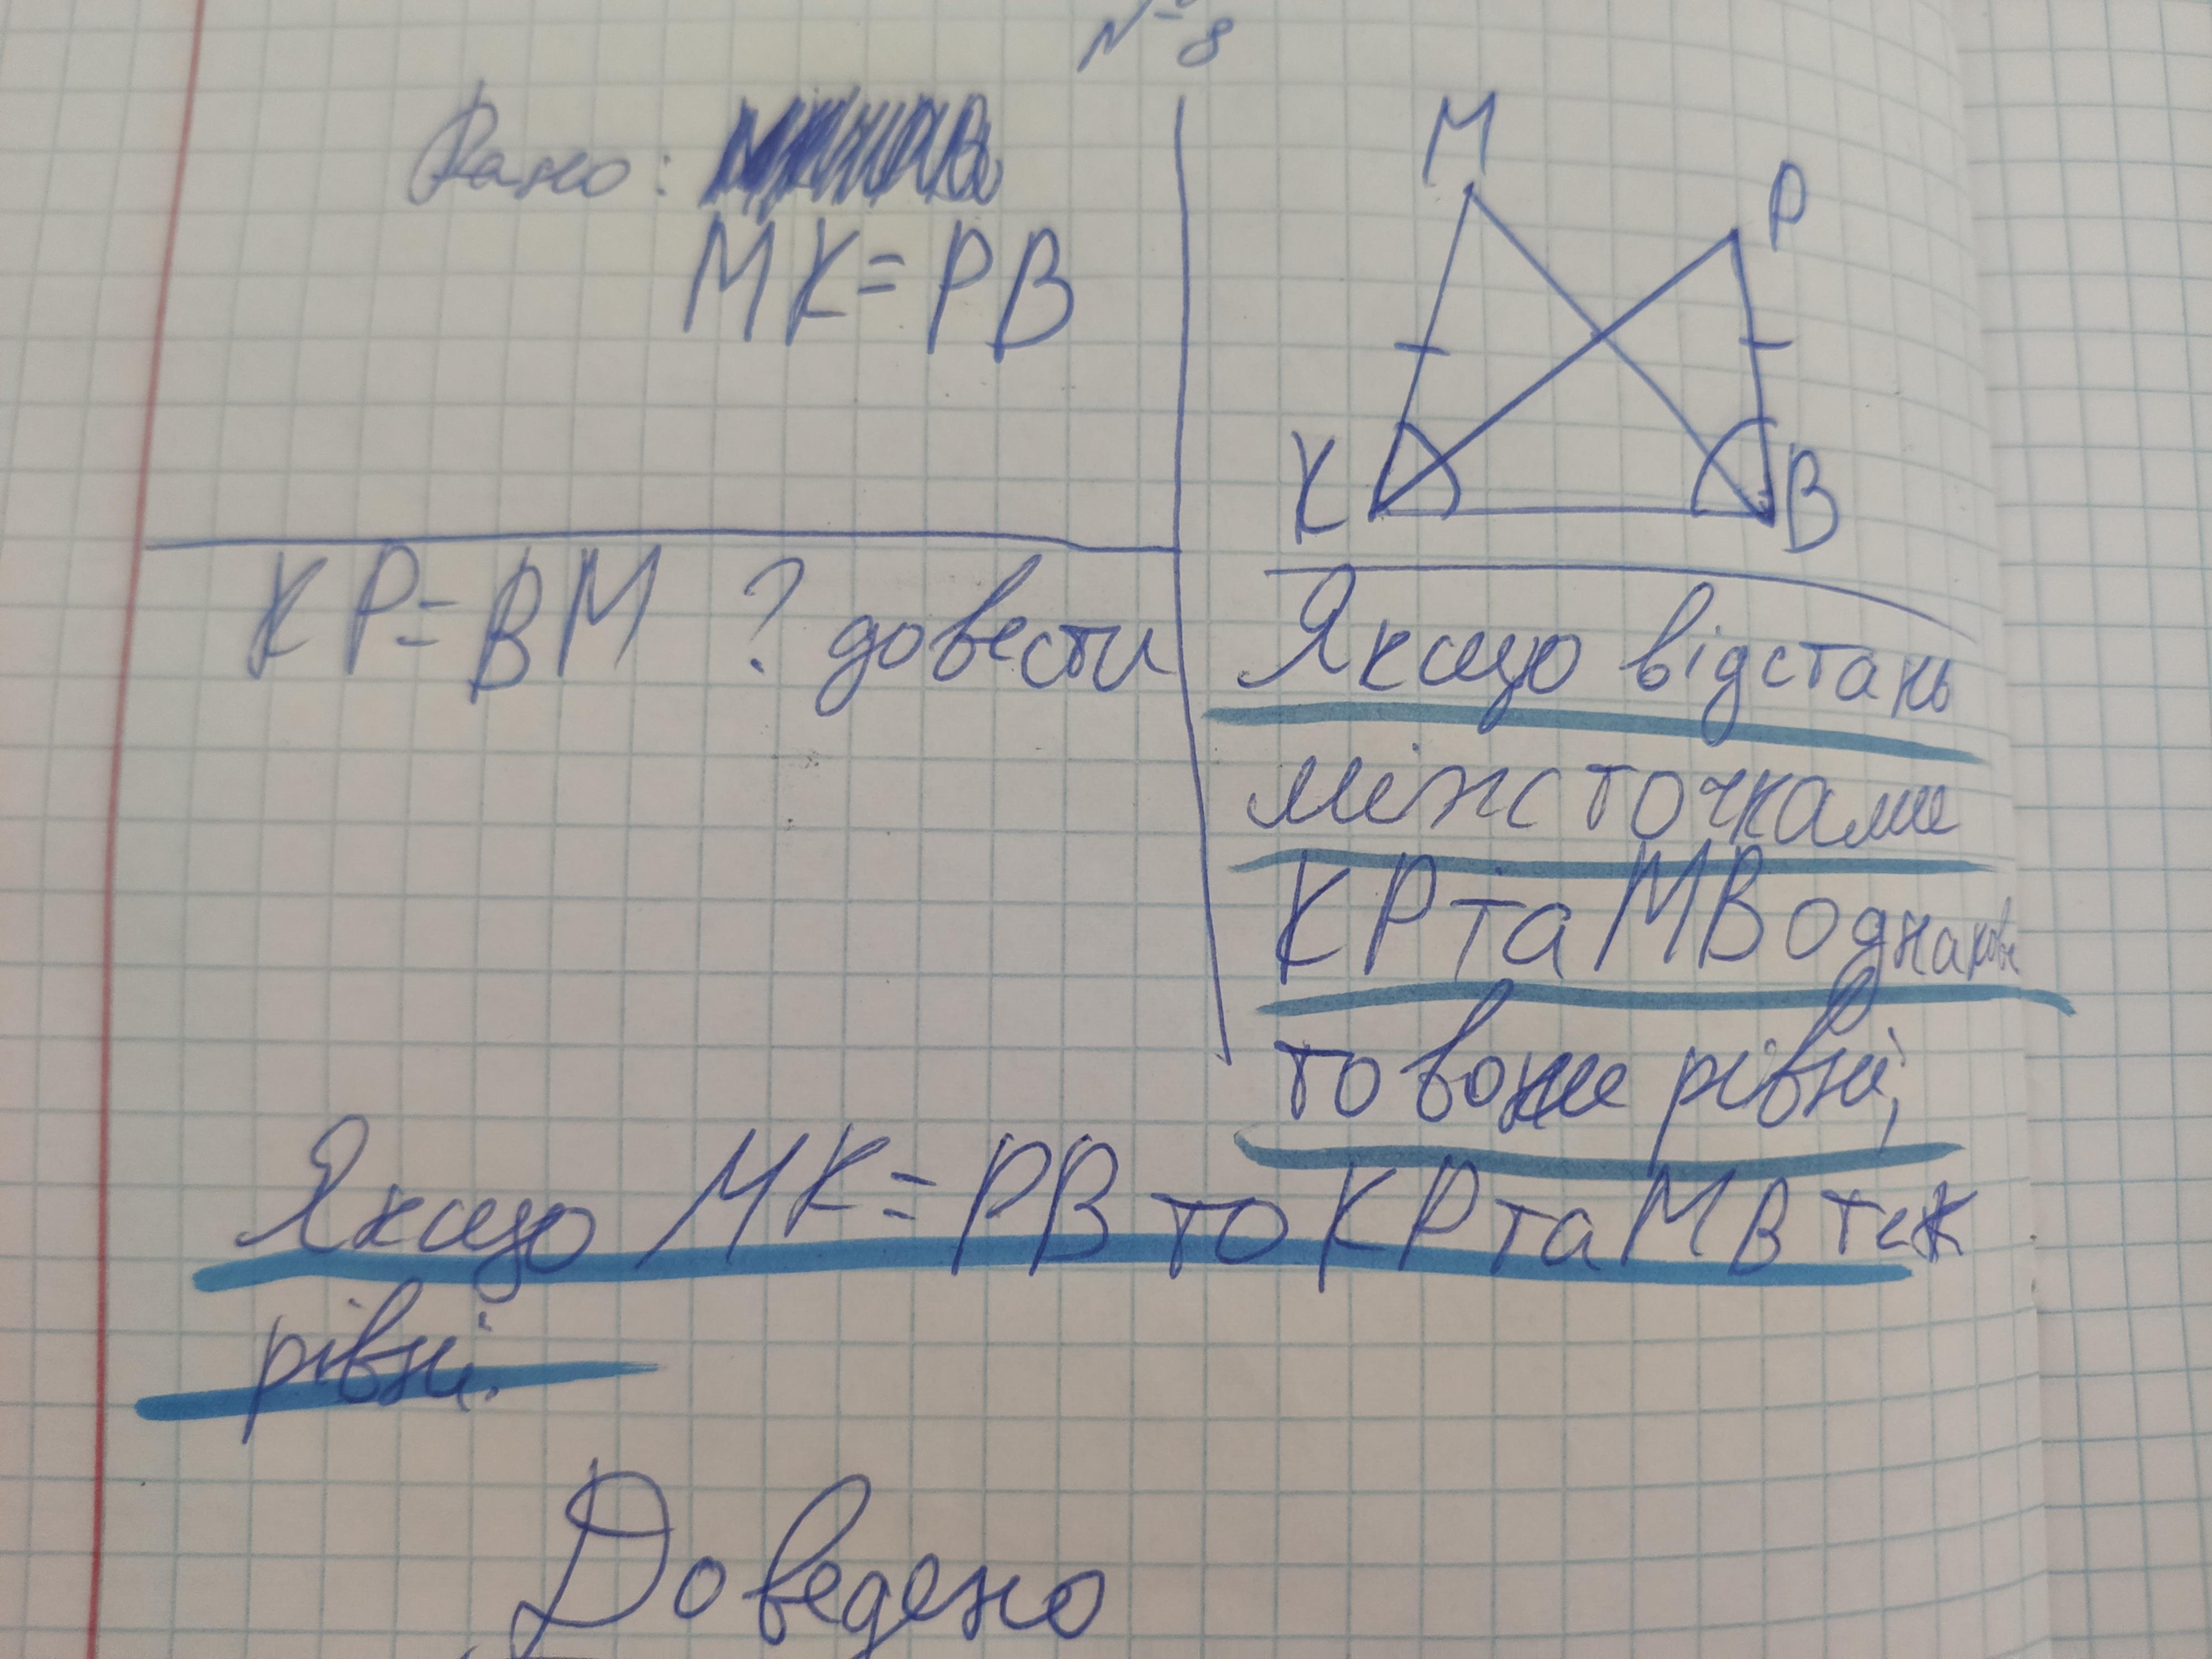 №8
Дано:
MK=PB
M
P
K
B
KP=BM ? довести
Якщо відстань
між точками
KP та MB однакові
то вони рівні,
Якщо MK=PB то KP та MB теж
рівні.
Доведено